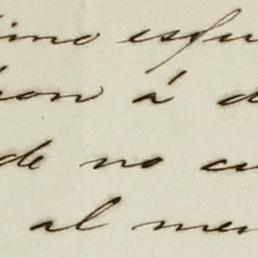 imo esfu
ron á d
de no cu
al men